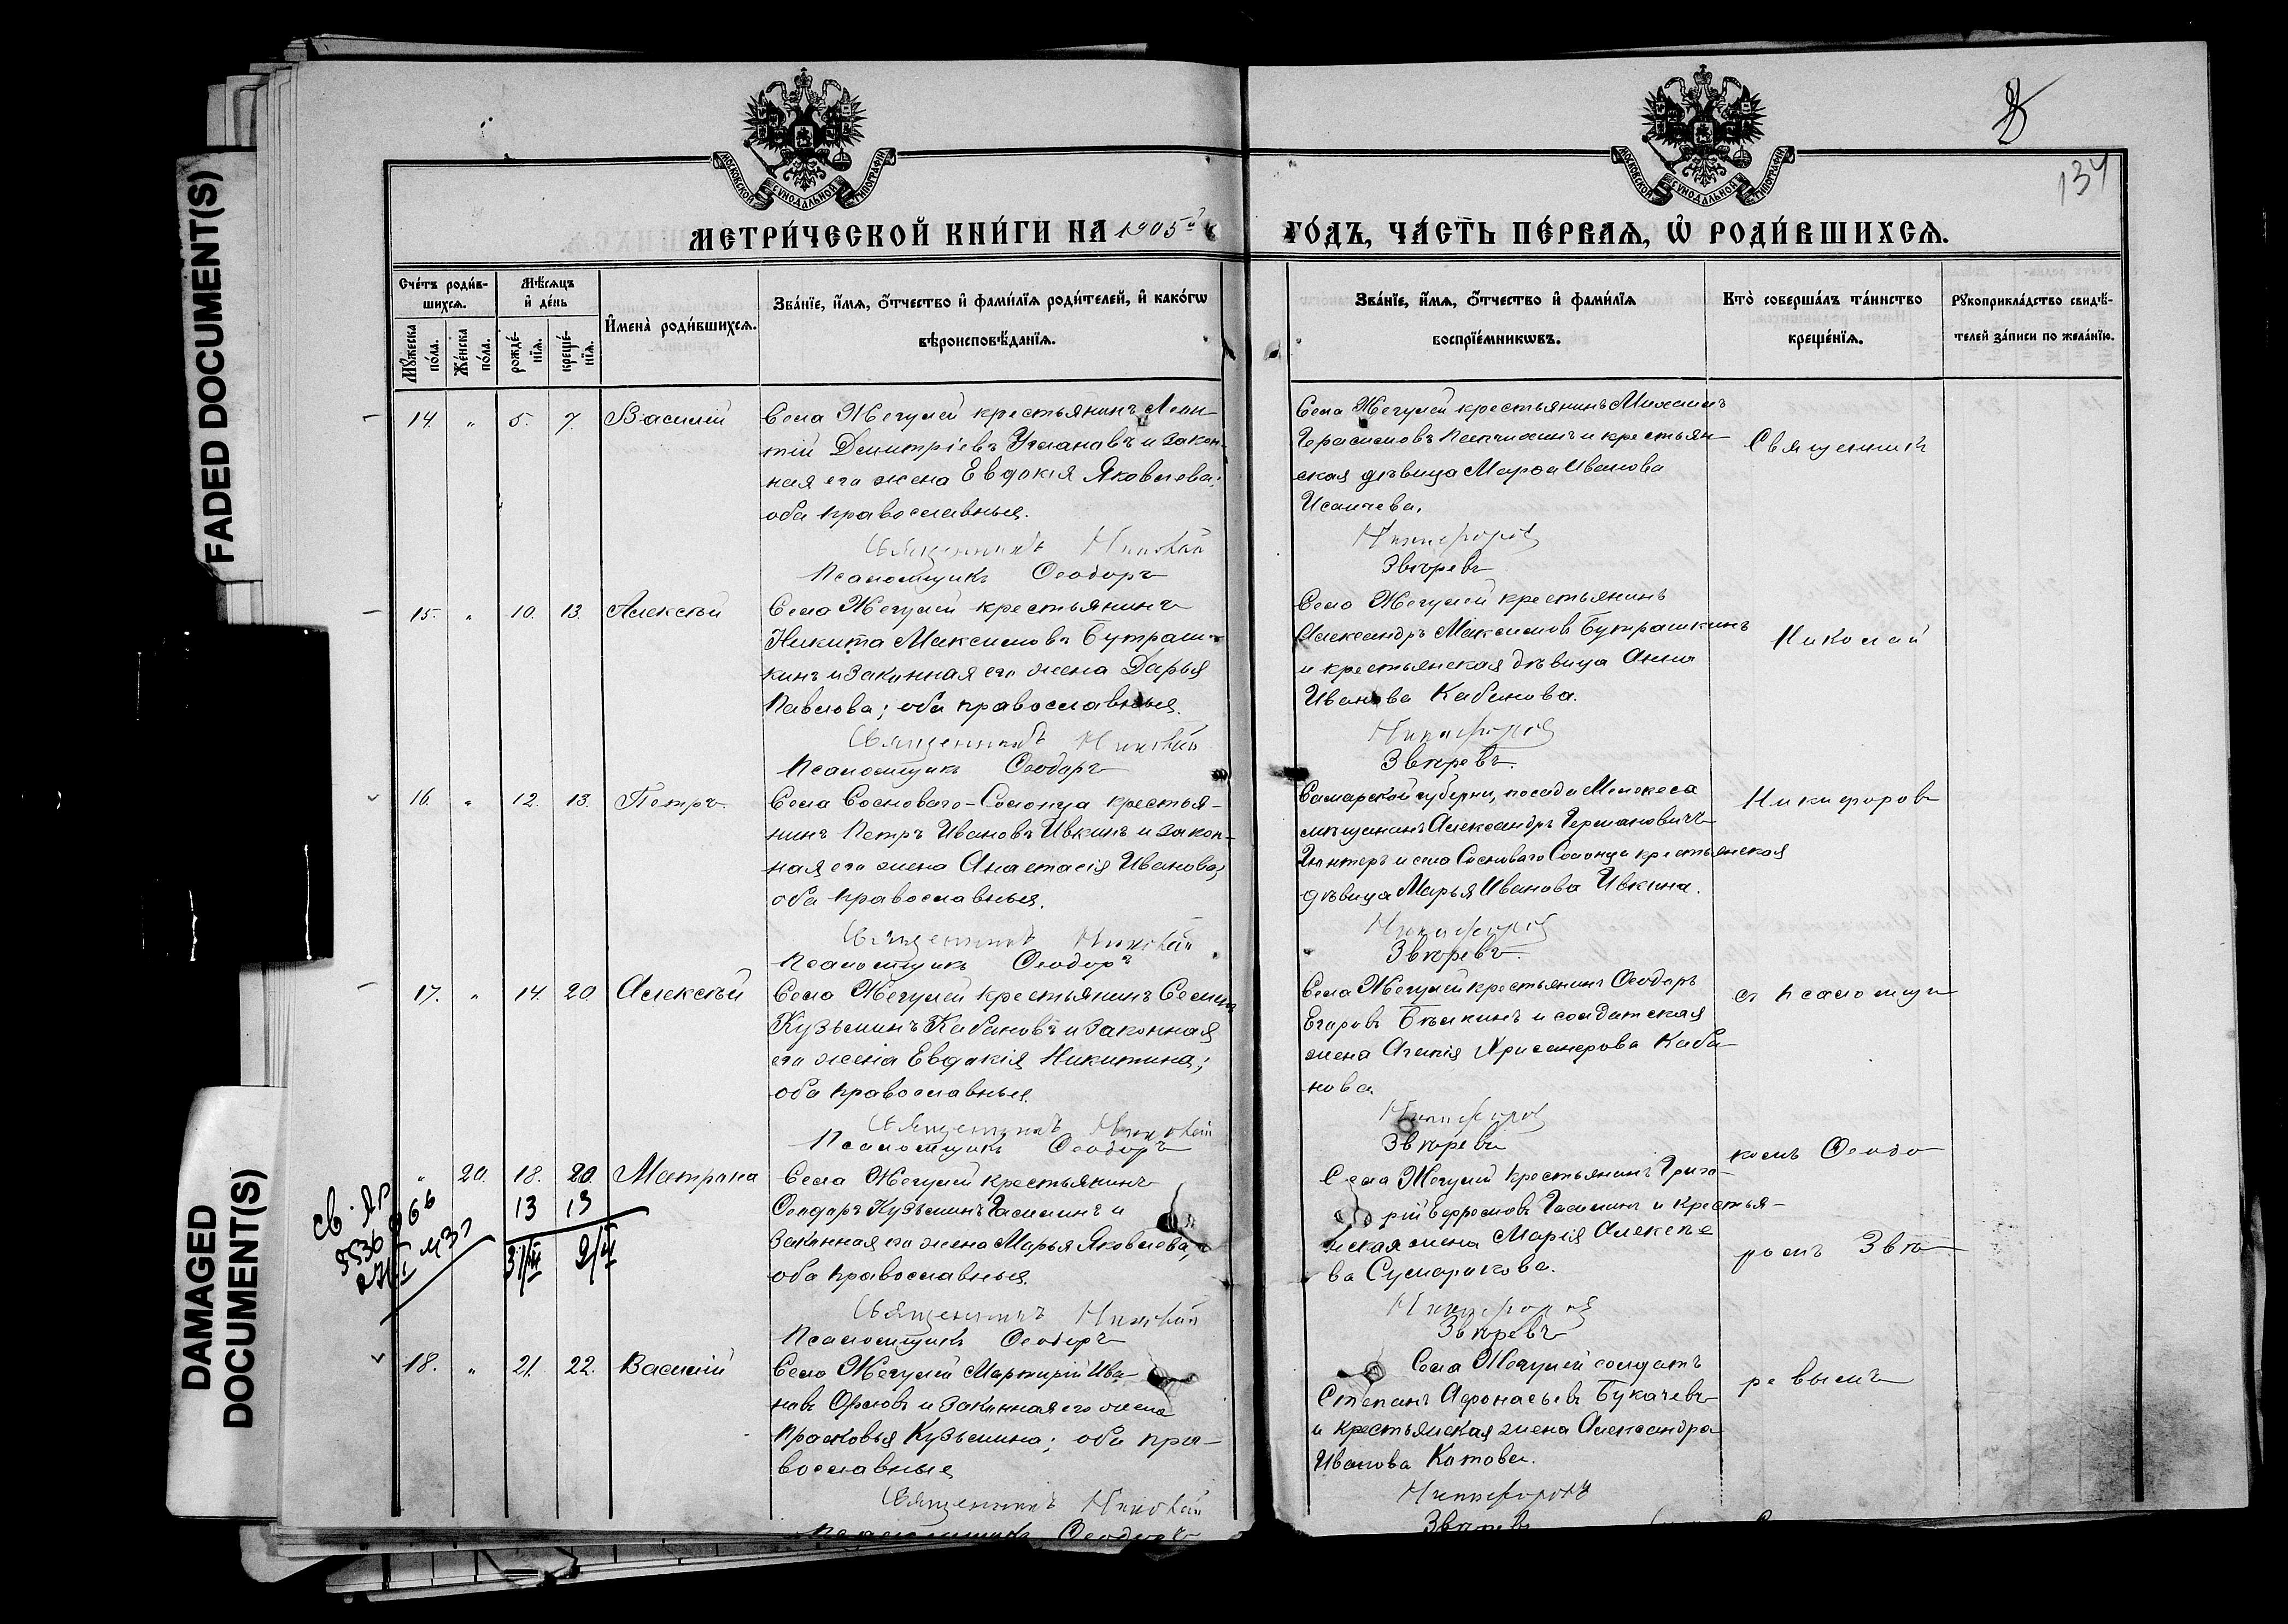 FADED DOCUMENT(S)
DAMAGED
DOCUMENT(S)
МОСКОВСКОЙ СѴНОДАЛЬНОЙ ТИПОГРАФІИ
МОСКОВСКОЙ СѴНОДАЛЬНОЙ ТИПОГРАФІИ
134
МЕТРИ́ЧЕСКОЙ КНИ́ГИ НА 1905й
ГО́ДЪ, ЧА́СТЬ ПЕ́РВАѦ, Ѡ҆ РОДИ́ВШИХСѦ.
Сче́тъ роди́в-
шихсѧ.
Мꙋ́жеска по́ла.
Же́нска по́ла.
Мѣ́сѧцъ
и҆ де́нь
рожде́-нїѧ.
креще́-нїѧ.
И҆мена̀ роди́вшихсѧ.
Зва́нїе, и҆́мѧ, ѻ҆́тчество и҆ фами́лїѧ роди́телей, и҆ како́гѡ
вѣроисповѣ́данїѧ.
Зва́нїе, и҆́мѧ, ѻ҆́тчество и҆ фами́лїѧ
воспрїе́мникѡвъ.
Кто̀ соверша́лъ та́инство
креще́нїѧ.
Рꙋкоприкла́дство свидѣ́-
телей за́писи по жела́нїю.
14. " 5. 7. Василій
Села Жегулей крестьянинъ Леон-
тій Димитріевъ и закон-
ная его жена Евдокія Яковлева;
оба православные.
Священникъ Николай
Псаломщикъ Ѳеодоръ
Села Жегулей крестьянинъ Михаилъ
Герасимовъ и крестьян-
ская дѣвица Марѳа Иванова
Исаичева.
Никифоровъ
Звѣревъ
Священникъ
15. " 10. 13. Алексѣй
Села Жегулей крестьянинъ
Никита Максимовъ Бутраш-
кинъ и законная его жена Дарья
Павлова; оба православные.
Священникъ Николай
Псаломщикъ Ѳеодоръ
Села Жегулей крестьянинъ
Александръ Максимовъ Бутрашкинъ
и крестьянская дѣвица Анна
Иванова Кабанова.
Никифоровъ
Звѣревъ.
Николай
16. " 12. 13. Петръ.
Села Сосноваго-Солонца крестья-
нинъ Петръ Ивановъ Ивкинъ и закон-
ная его жена Анастасія Иванова;
оба православные.
Священникъ Николай
Псаломщикъ Ѳеодоръ
Самарской губерніи, посада Мелекеса
мѣщанинъ Александръ Германовичъ
Гюнтеръ и села Сосноваго Солонца крестьянская
дѣвица Марья Иванова Ивкина.
Никифоровъ
Звѣревъ.
Никифоровъ
17. " 14. 20 Алексѣй
Села Жегулей крестьянинъ
Кузьминъ Кабановъ и законная
его жена Евдокія Никитина;
оба православные.
Священникъ Николай
Псаломщикъ Ѳеодоръ
Села Жегулей крестьянинъ Ѳеодоръ
Егоровъ и солдатская
жена Агапія Хрисанфова Каба-
нова.
Никифоровъ
Звѣревъ
съ псаломщи
" 20. 18. 20. Матрона
13 13
31/III 2/IV
Села Жегулей крестьянинъ
Ѳеодоръ Кузьминъ и
законная его жена Марья Яковлева;
оба православные.
Священникъ Николай
Псаломщикъ Ѳеодоръ
Села Жегулей крестьянинъ Григо-
рій и крестья-
нская жена Марія Алексѣе
ва Сумарокова.
Никифоровъ
Звѣревъ
комъ Ѳеодо
ромъ Звѣ
18. " 21. 22. Василій
Села Жегулей Мартирій Ива-
новъ Орловъ и законная его жена
Прасковья Кузьмина; оба пра-
вославные
Священникъ Николай
Псаломщикъ Ѳеодоръ
Села Жегулей солдатъ
Степанъ Аѳонасьевъ Букачевъ
и крестьянская жена Александра
Иванова Котова.
Никифоровъ
Звѣревъ
ревымъ